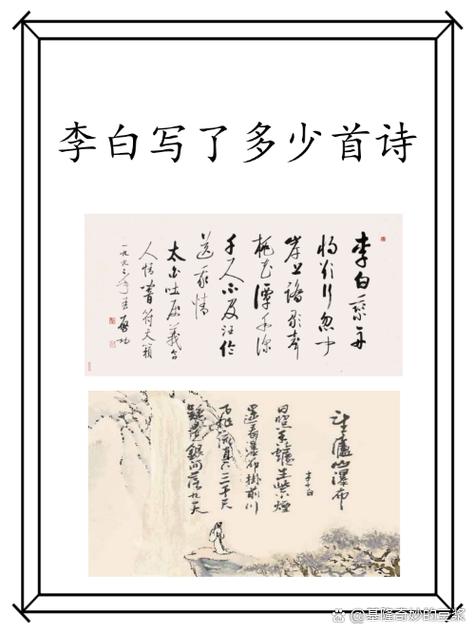 李白写了多少首诗
李白乘舟
将欲行忽闻
岸上踏歌声
桃花潭水深
千尺不及汪伦
送我情
太白吐属
人情 符天籁
启功
望廬山瀑布
李白
日照香爐生紫煙
遥看瀑布掛前川
飛流直下三千尺
疑是銀河落九天
@基隆奇妙的豆浆